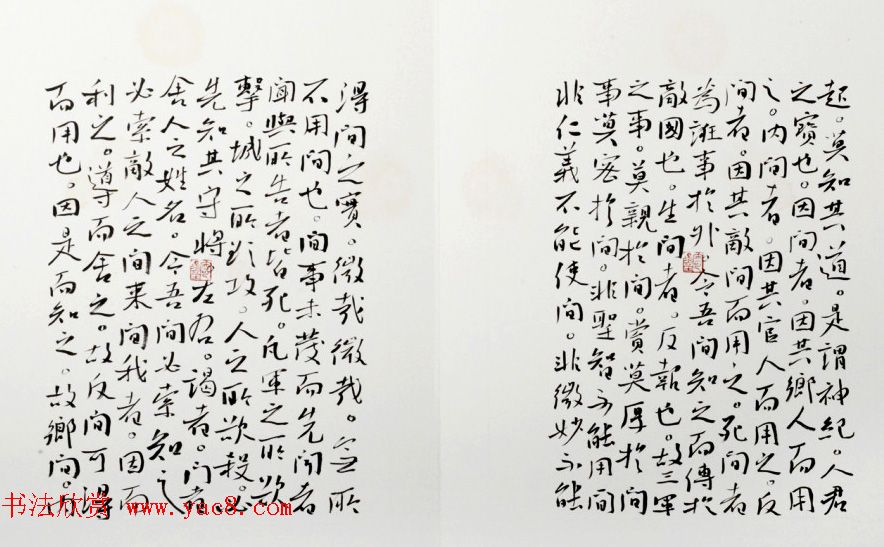 起。莫知其道。是謂神紀。人君
之寶也。因間者。因其鄉人而用
之。内間者。因其官人而用之。反
間者。因其敵間而用之。死間者
為誑事於外令吾間知之而傳於
敵國也。生間者。反報也。故三軍
之事。莫親於間。賞莫厚於間
事莫密於間。非聖智不能用間
非仁義不能使間。非微妙不能
得間之實。微哉微哉。無所
不用間也。間事未發而先聞者
聞與所告者皆死。凡軍之所欲
擊。城之所欲攻。人之所欲殺。必
先知其守將左右。謁者。門者
舍人之姓名。令吾間必索知之
必索敵人之間來間我者。因而
利之。導而舍之。故反間可得
而用也。因是而知之。故鄉間。内
书法欣赏 www.yac8.com